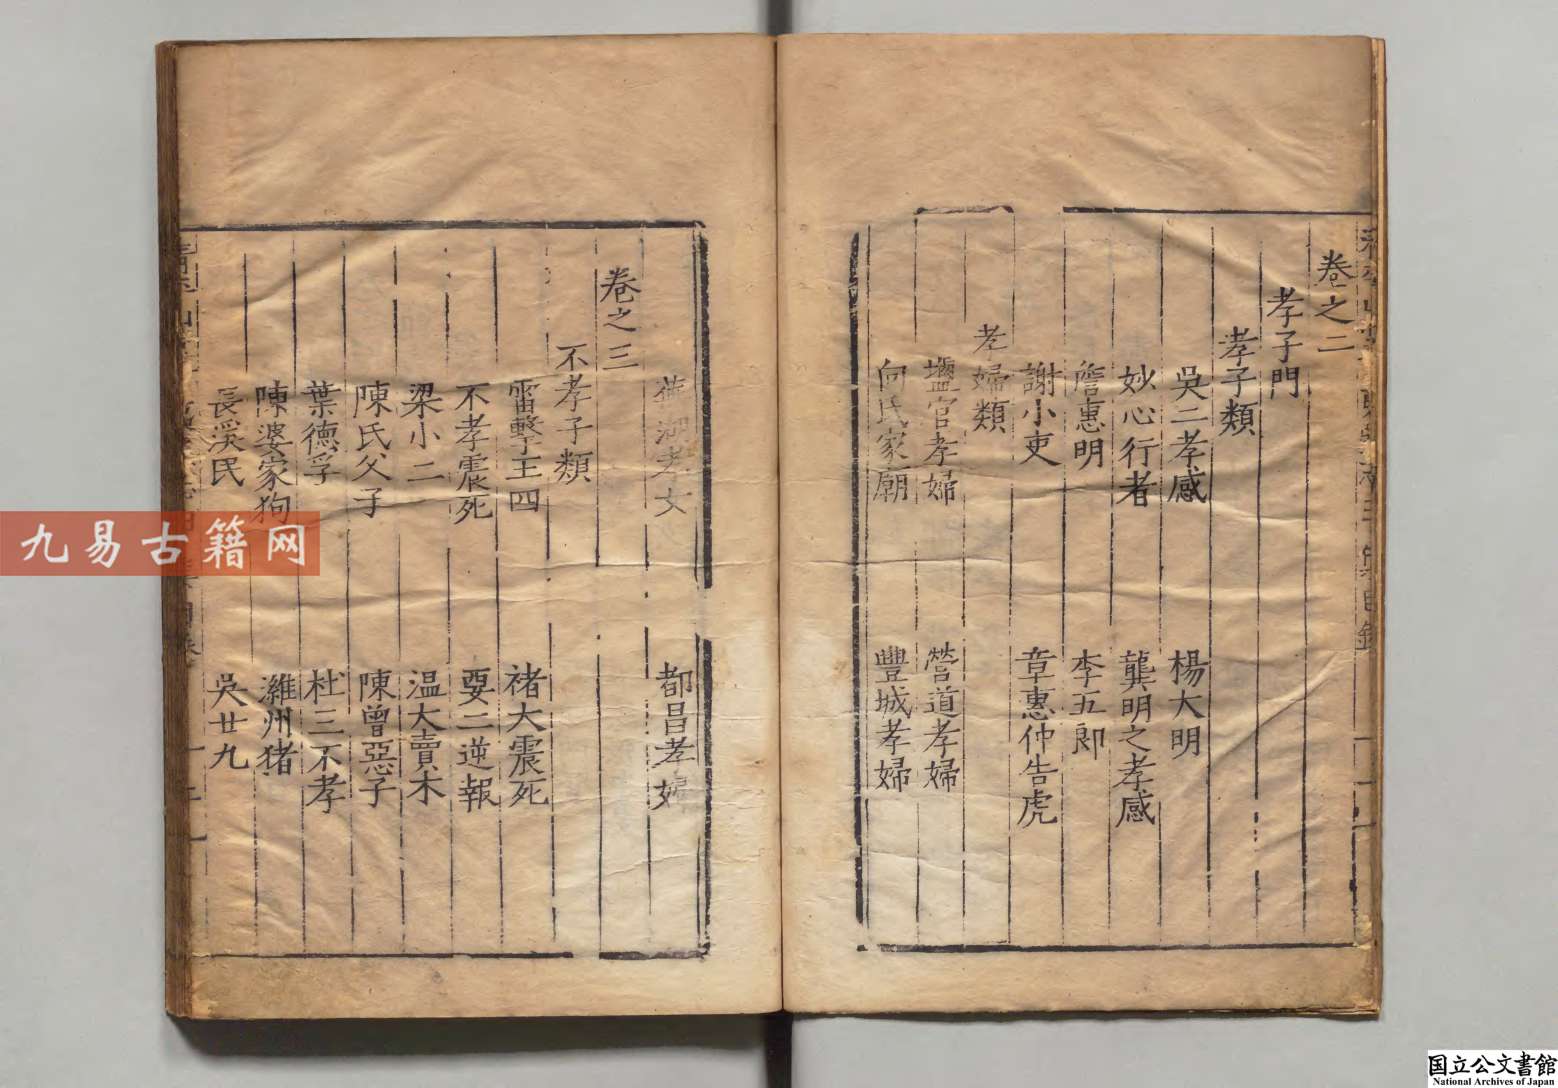 卷之二
孝子門
孝子類
吳二孝感　楊大明
妙心行者　龔明之孝感
詹惠明　李五郎
謝小吏　章惠仲告虎
孝婦類
鹽官孝婦　營道孝婦
向氏家廟　豐城孝婦
蕪湖孝女　都昌孝婦
卷之三
不孝子類
雷擊王四　褚大震死
不孝震死　耍二逆報
梁小二　温大賣木
陳氏父子　陳曾惡子
葉德孚　杜三不孝
陳婆家狗　濰州猪
長溪民　吳廿九
九易古籍网
国立公文書館
National Archives of Japan